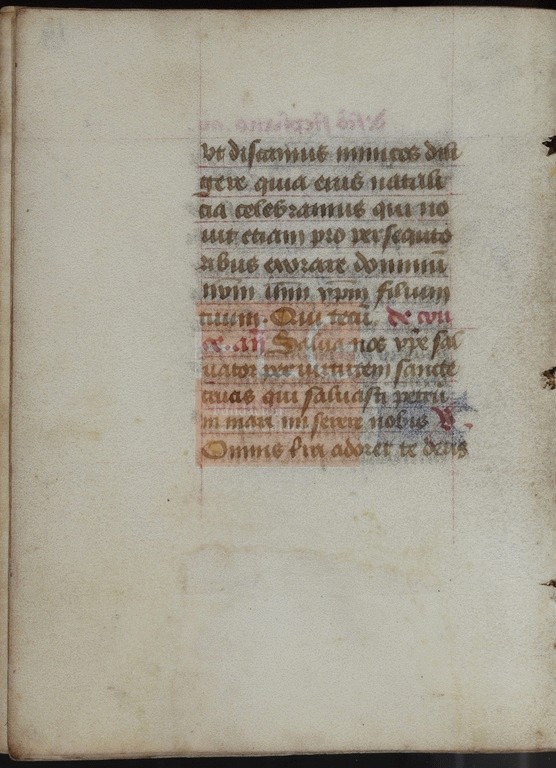 ut discamus inimicos dili
gere quia eius natali
cia celebramus qui no
uit etiam pro persequto
ribus exorare dominum
nrm ihm xpm filium
tuum. Qui tecu. de cru
ce. an Salua nos xpe sal
uator per uirtutem sancte
crucis qui saluasti petru
in mari mi serere nobis V.
Omnis tra adoret te deus